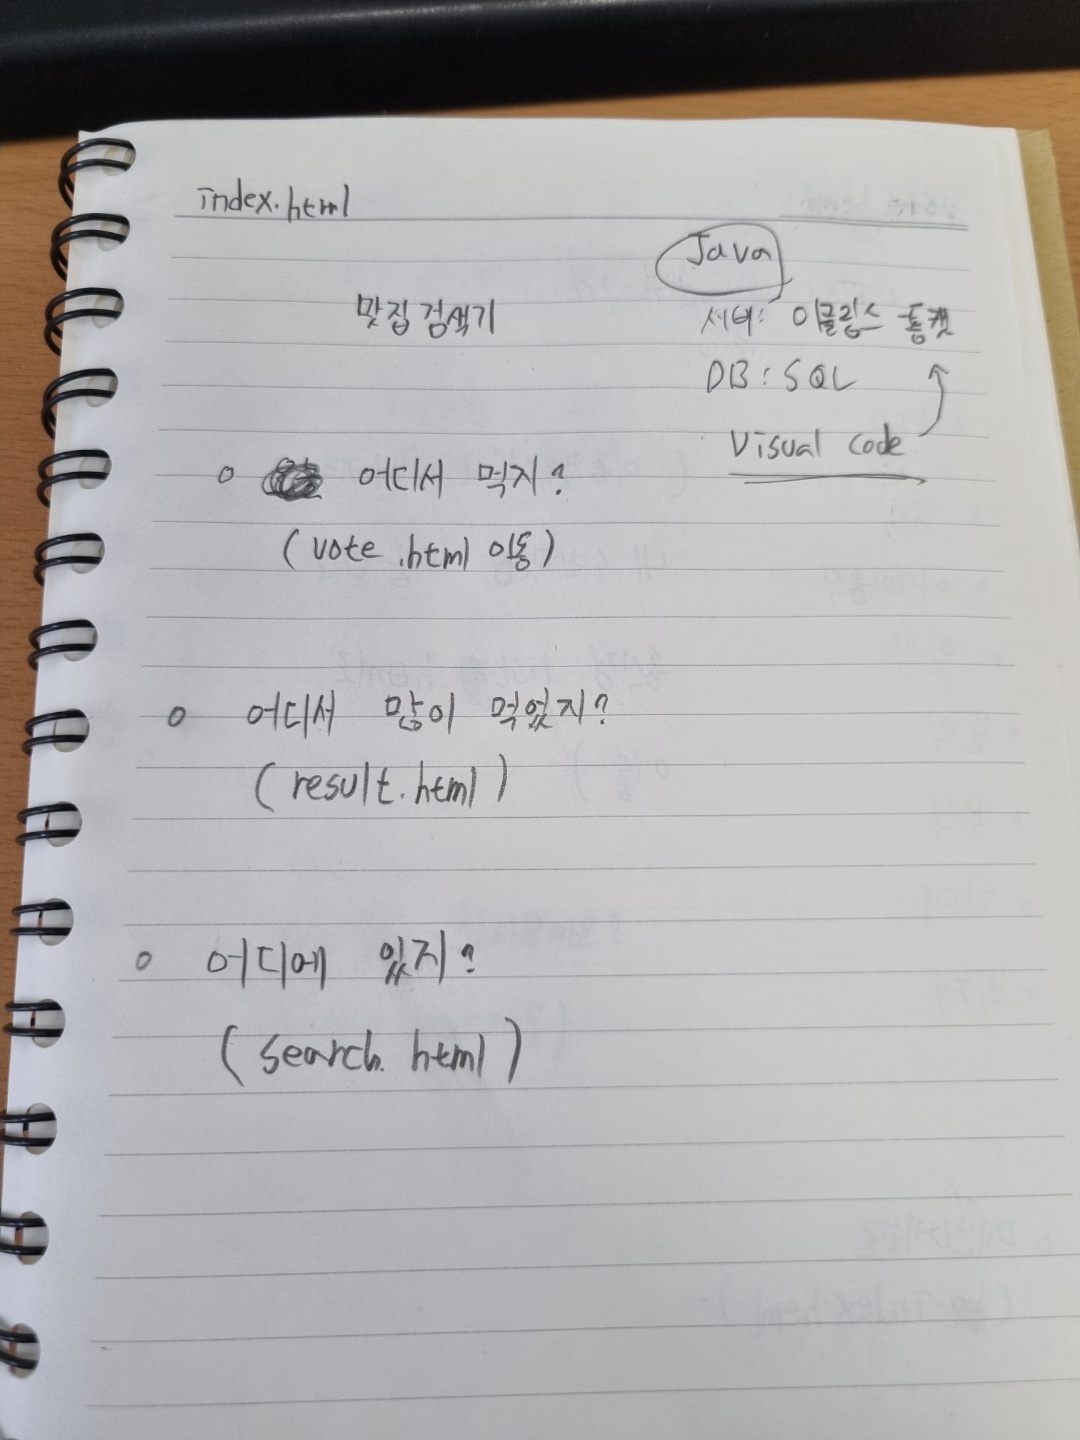 index.html
Java
맛집 검색기
서버: 이클립스 톰캣
DB : SQL
Visual code
o 어디서 먹지?
(vote.html 이동)
o 어디서 많이 먹었지?
(result.html)
o 어디에 있지?
(search.html)